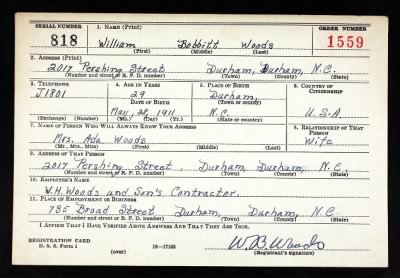 SERIAL NUMBER 1. NAME (Print) ORDER NUMBER
818 William Bobbitt Woods 1559
(First) (Middle) (Last)
2. ADDRESS (Print)
2017 Pershing Street Durham, Durham, N.C.
(Number and street or R. F. D. number) (Town) (County) (State)
3. TELEPHONE 4. AGE IN YEARS 5. PLACE OF BIRTH 6. COUNTRY OF CITIZENSHIP
J1801 29 Durham,
(Town or county)
DATE OF BIRTH
May, 28, 1911 N.C. U.S.A.
(Exchange) (Number) (Mo.) (Day) (Yr.) (State or country)
7. NAME OF PERSON WHO WILL ALWAYS KNOW YOUR ADDRESS 8. RELATIONSHIP OF THAT PERSON
Mrs. Ada Woods Wife
(Mr., Mrs., Miss) (First) (Middle) (Last)
9. ADDRESS OF THAT PERSON
2017 Pershing Street, Durham, Durham N.C.
(Number and street or R. F. D. number) (Town) (County) (State)
10. EMPLOYER'S NAME
W.H. Woods and Son's Contractor.
11. PLACE OF EMPLOYMENT OR BUSINESS
785 Broad Street Durham, Durham, N.C.
(Number and street or R. F. D. number) (Town) (County) (State)
I AFFIRM THAT I HAVE VERIFIED ABOVE ANSWERS AND THAT THEY ARE TRUE.
REGISTRATION CARD
D. S. S. Form 1 16-17105 W. B. Woods
(over) (Registrant's signature)